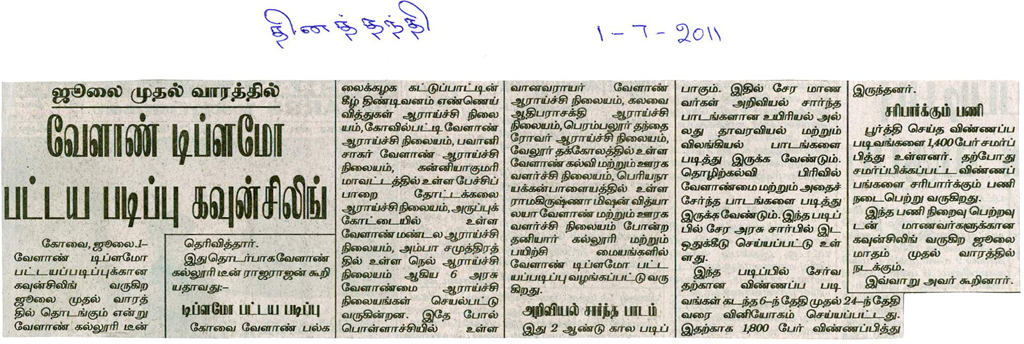 தினத்தந்தி
1-7-2011
ஜூலை முதல் வாரத்தில்
வேளாண் டிப்ளமோ
பட்டய படிப்பு கவுன்சிலிங்
கோவை, ஜூலை.1–
வேளாண் டிப்ளமோ
பட்டயப்படிப்புக்கான
கவுன்சிலிங் வருகிற
ஜூலை முதல் வாரத்
தில் தொடங்கும் என்று
வேளாண் கல்லூரி டீன்
தெரிவித்தார்.
இதுதொடர்பாகவேளாண்
கல்லூரி டீன் ராஜராஜன் கூறி
யதாவது:-
டிப்ளமோ பட்டய படிப்பு
கோவை வேளாண் பல்க
லைக்கழக கட்டுப்பாட்டின்
கீழ் திண்டிவனம் எண்ணெய்
வித்துகள் ஆராய்ச்சி நிலை
யம்,கோவில்பட்டி வேளாண்
ஆராய்ச்சி நிலையம், பவானி
சாகர் வேளாண் ஆராய்ச்சி
நிலையம், கன்னியாகுமரி
மாவட்டத்தில் உள்ள பேச்சிப்
பாறை தோட்டக்கலை
ஆராய்ச்சி நிலையம், அருப்புக்
கோட்டையில் உள்ள
வேளாண் மண்டல ஆராய்ச்சி
நிலையம், அம்பா சமுத்திரத்
தில் உள்ள நெல் ஆராய்ச்சி
நிலையம் ஆகிய 6 அரசு
வேளாண்மை ஆராய்ச்சி
நிலையங்கள் செயல்பட்டு
வருகின்றன. இதே போல்
பொள்ளாச்சியில் உள்ள
வானவராயர் வேளாண்
ஆராய்ச்சி நிலையம், கலவை
ஆதிபராசக்தி ஆராய்ச்சி
நிலையம்,பெரம்பலூர் தந்தை
ரோவர் ஆராய்ச்சி நிலையம்,
வேலூர் தக்கோலத்தில் உள்ள
வேளாண் கல்வி மற்றும் ஊரக
வளர்ச்சி நிலையம், பெரியநா
யக்கன்பாளையத்தில் உள்ள
ராமகிருஷ்ணா மிஷன் வித்யா
லயா வேளாண் மற்றும் ஊரக
வளர்ச்சி நிலையம் போன்ற
தனியார் கல்லூரி மற்றும்
பயிற்சி மையங்களில்
வேளாண் டிப்ளமோ பட்ட
யப்படிப்பு வழங்கப்பட்டு வரு
கிறது.
அறிவியல் சார்ந்த பாடம்
இது 2 ஆண்டு கால படிப்
பாகும். இதில் சேர மாண
வர்கள் அறிவியல் சார்ந்த
பாடங்களான உயிரியல் அல்
லது தாவரவியல் மற்றும்
விலங்கியல் பாடங்களை
படித்து இருக்க வேண்டும்.
தொழிற்கல்வி பிரிவில்
வேளாண்மை மற்றும் அதைச்
சேர்ந்த பாடங்களை படித்து
இருக்க வேண்டும். இந்த படிப்
பில் சேர அரசு சார்பில் இட
ஒதுக்கீடு செய்யப்பட்டு உள்
ளது.
இந்த படிப்பில் சேர்வ
தற்கான விண்ணப்ப படி
வங்கள் கடந்த 6–ந் தேதி முதல் 24–ந்தேதி
வரை வினியோகம் செய்யப்பட்டது.
இதற்காக 1,800 பேர் விண்ணப்பித்து
இருந்தனர்.
சரிபார்க்கும் பணி
பூர்த்தி செய்த விண்ணப்ப
படிவங்களை 1,400 பேர் சமர்ப்
பித்து உள்ளனர். தற்போது
சமர்ப்பிக்கப்பட்ட விண்ணப்
பங்களை சரிபார்க்கும் பணி
நடைபெற்று வருகிறது.
இந்த பணி நிறைவு பெற்றவு
டன் மாணவர்களுக்கான
கவுன்சிலிங் வருகிற ஜூலை
மாதம் முதல் வாரத்தில்
நடக்கும்.
இவ்வாறு அவர் கூறினார்.